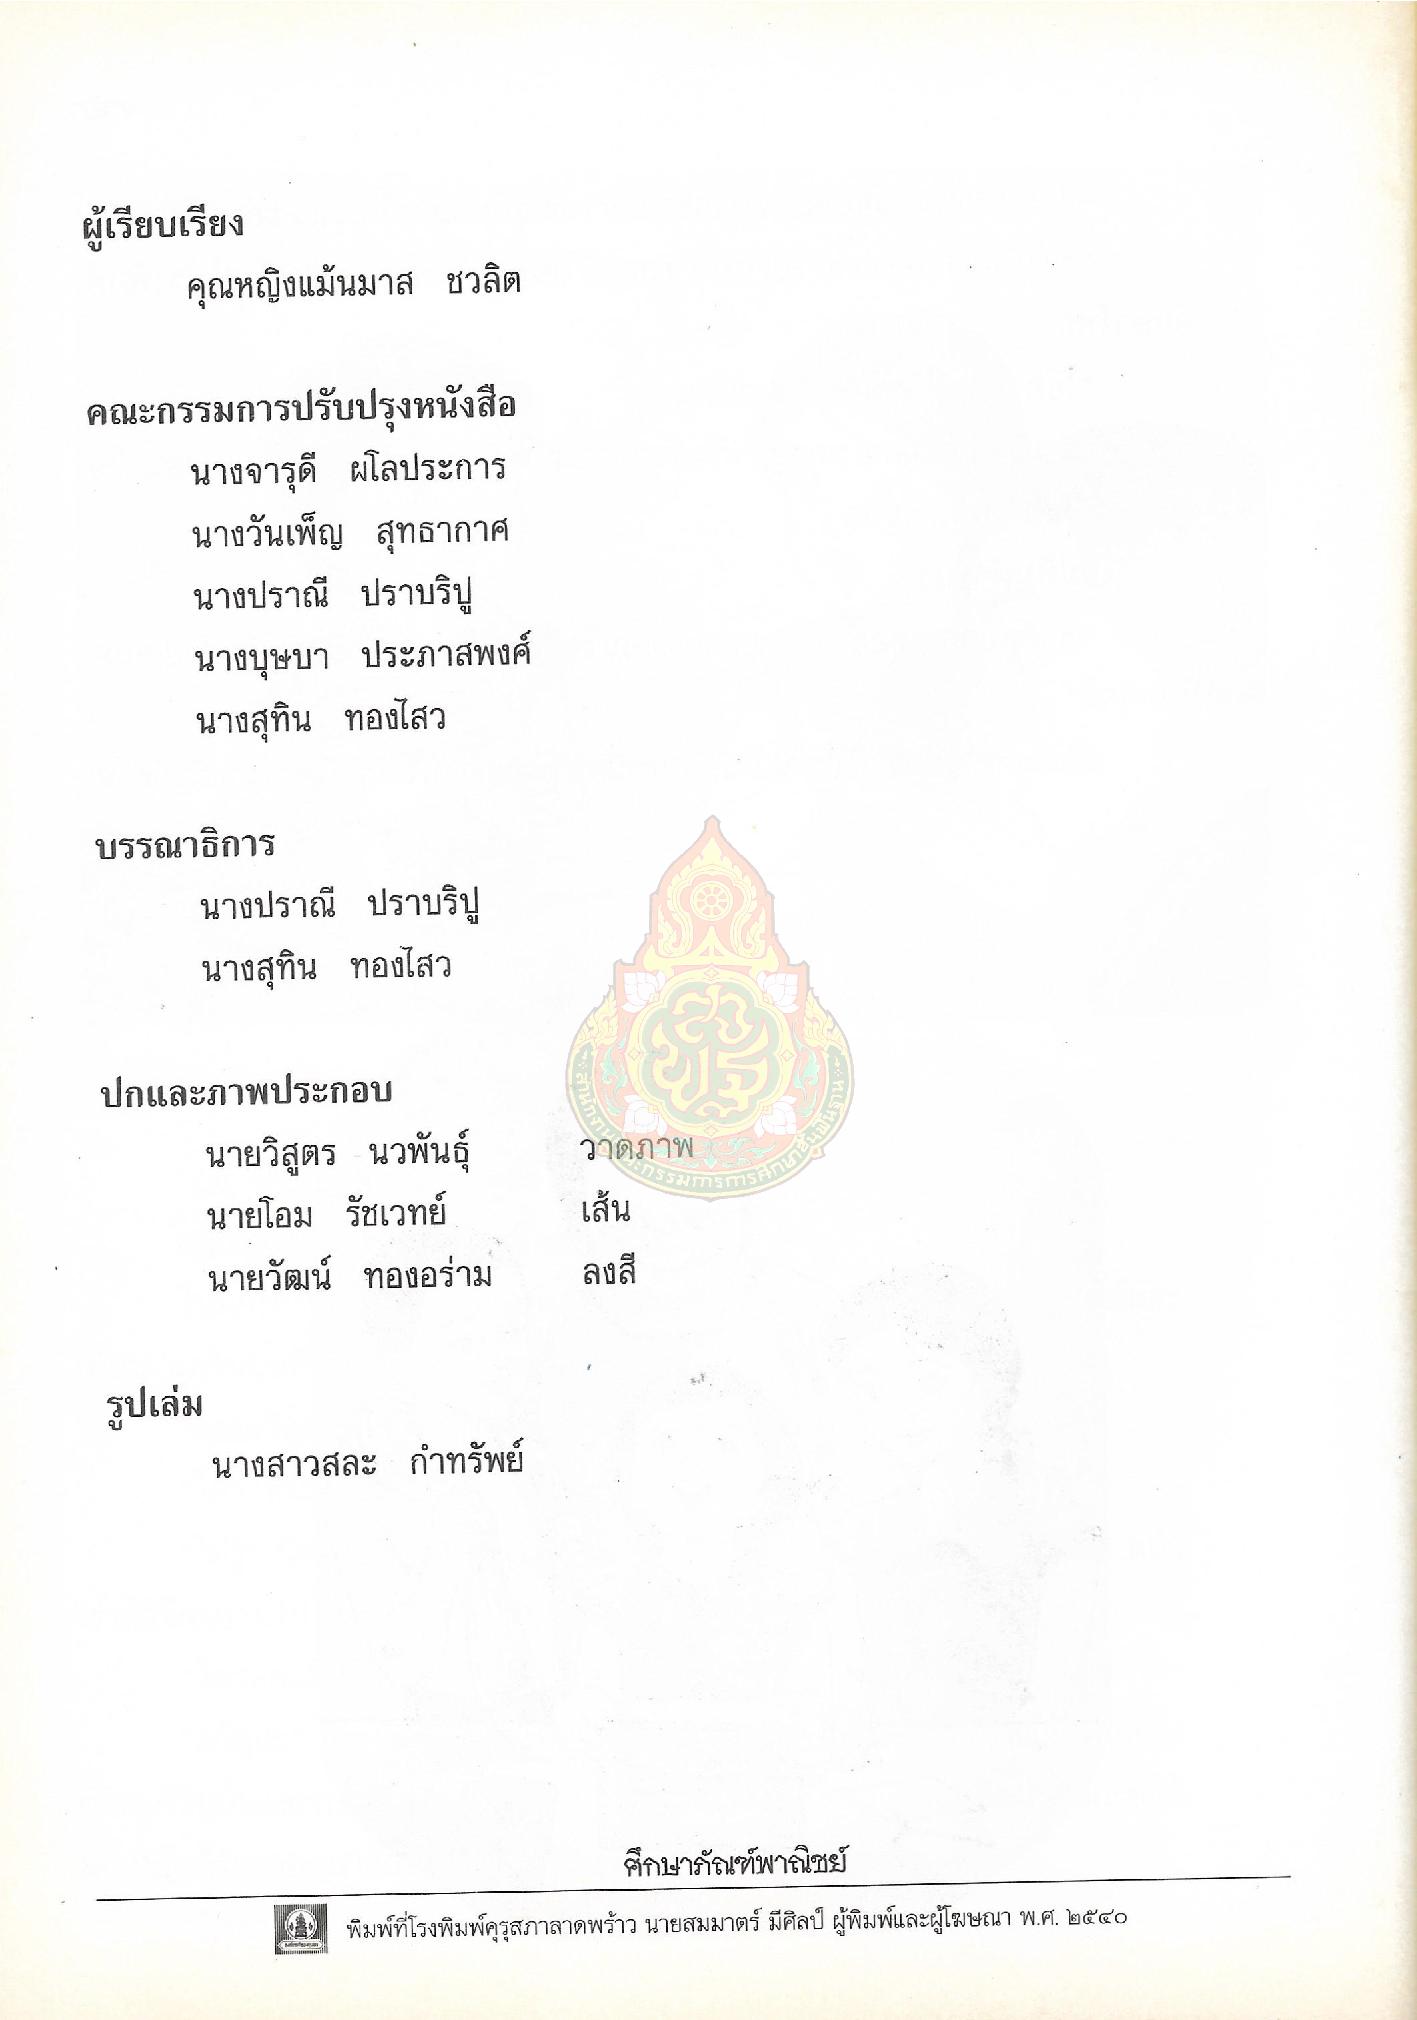 ผู้เรียบเรียง
คุณหญิงแม้นมาส ชวลิต
คณะกรรมการปรับปรุงหนังสือ
นางจารุดี ผโลประการ
นางวันเพ็ญ สุทธากาศ
นางปราณี ปราบริปู
นางบุษบา ประภาสพงศ์
นางสุทิน ทองไสว
บรรณาธิการ
นางปราณี ปราบริปู
นางสุทิน ทองไสว
ปกและภาพประกอบ
นายวิสูตร นวพันธุ์ วาดภาพ
นายโอม รัชเวทย์ เส้น
นายวัฒน์ ทองอร่าม ลงสี
รูปเล่ม
นางสาวสละ กำทรัพย์
สำนักงานคณะกรรมการการศึกษาขั้นพื้นฐาน
ศึกษาภัณฑ์พาณิชย์
พิมพ์ที่โรงพิมพ์คุรุสภาลาดพร้าว นายสมมาตร์ มีศิลป์ ผู้พิมพ์และผู้โฆษณา พ.ศ. ๒๕๔๐